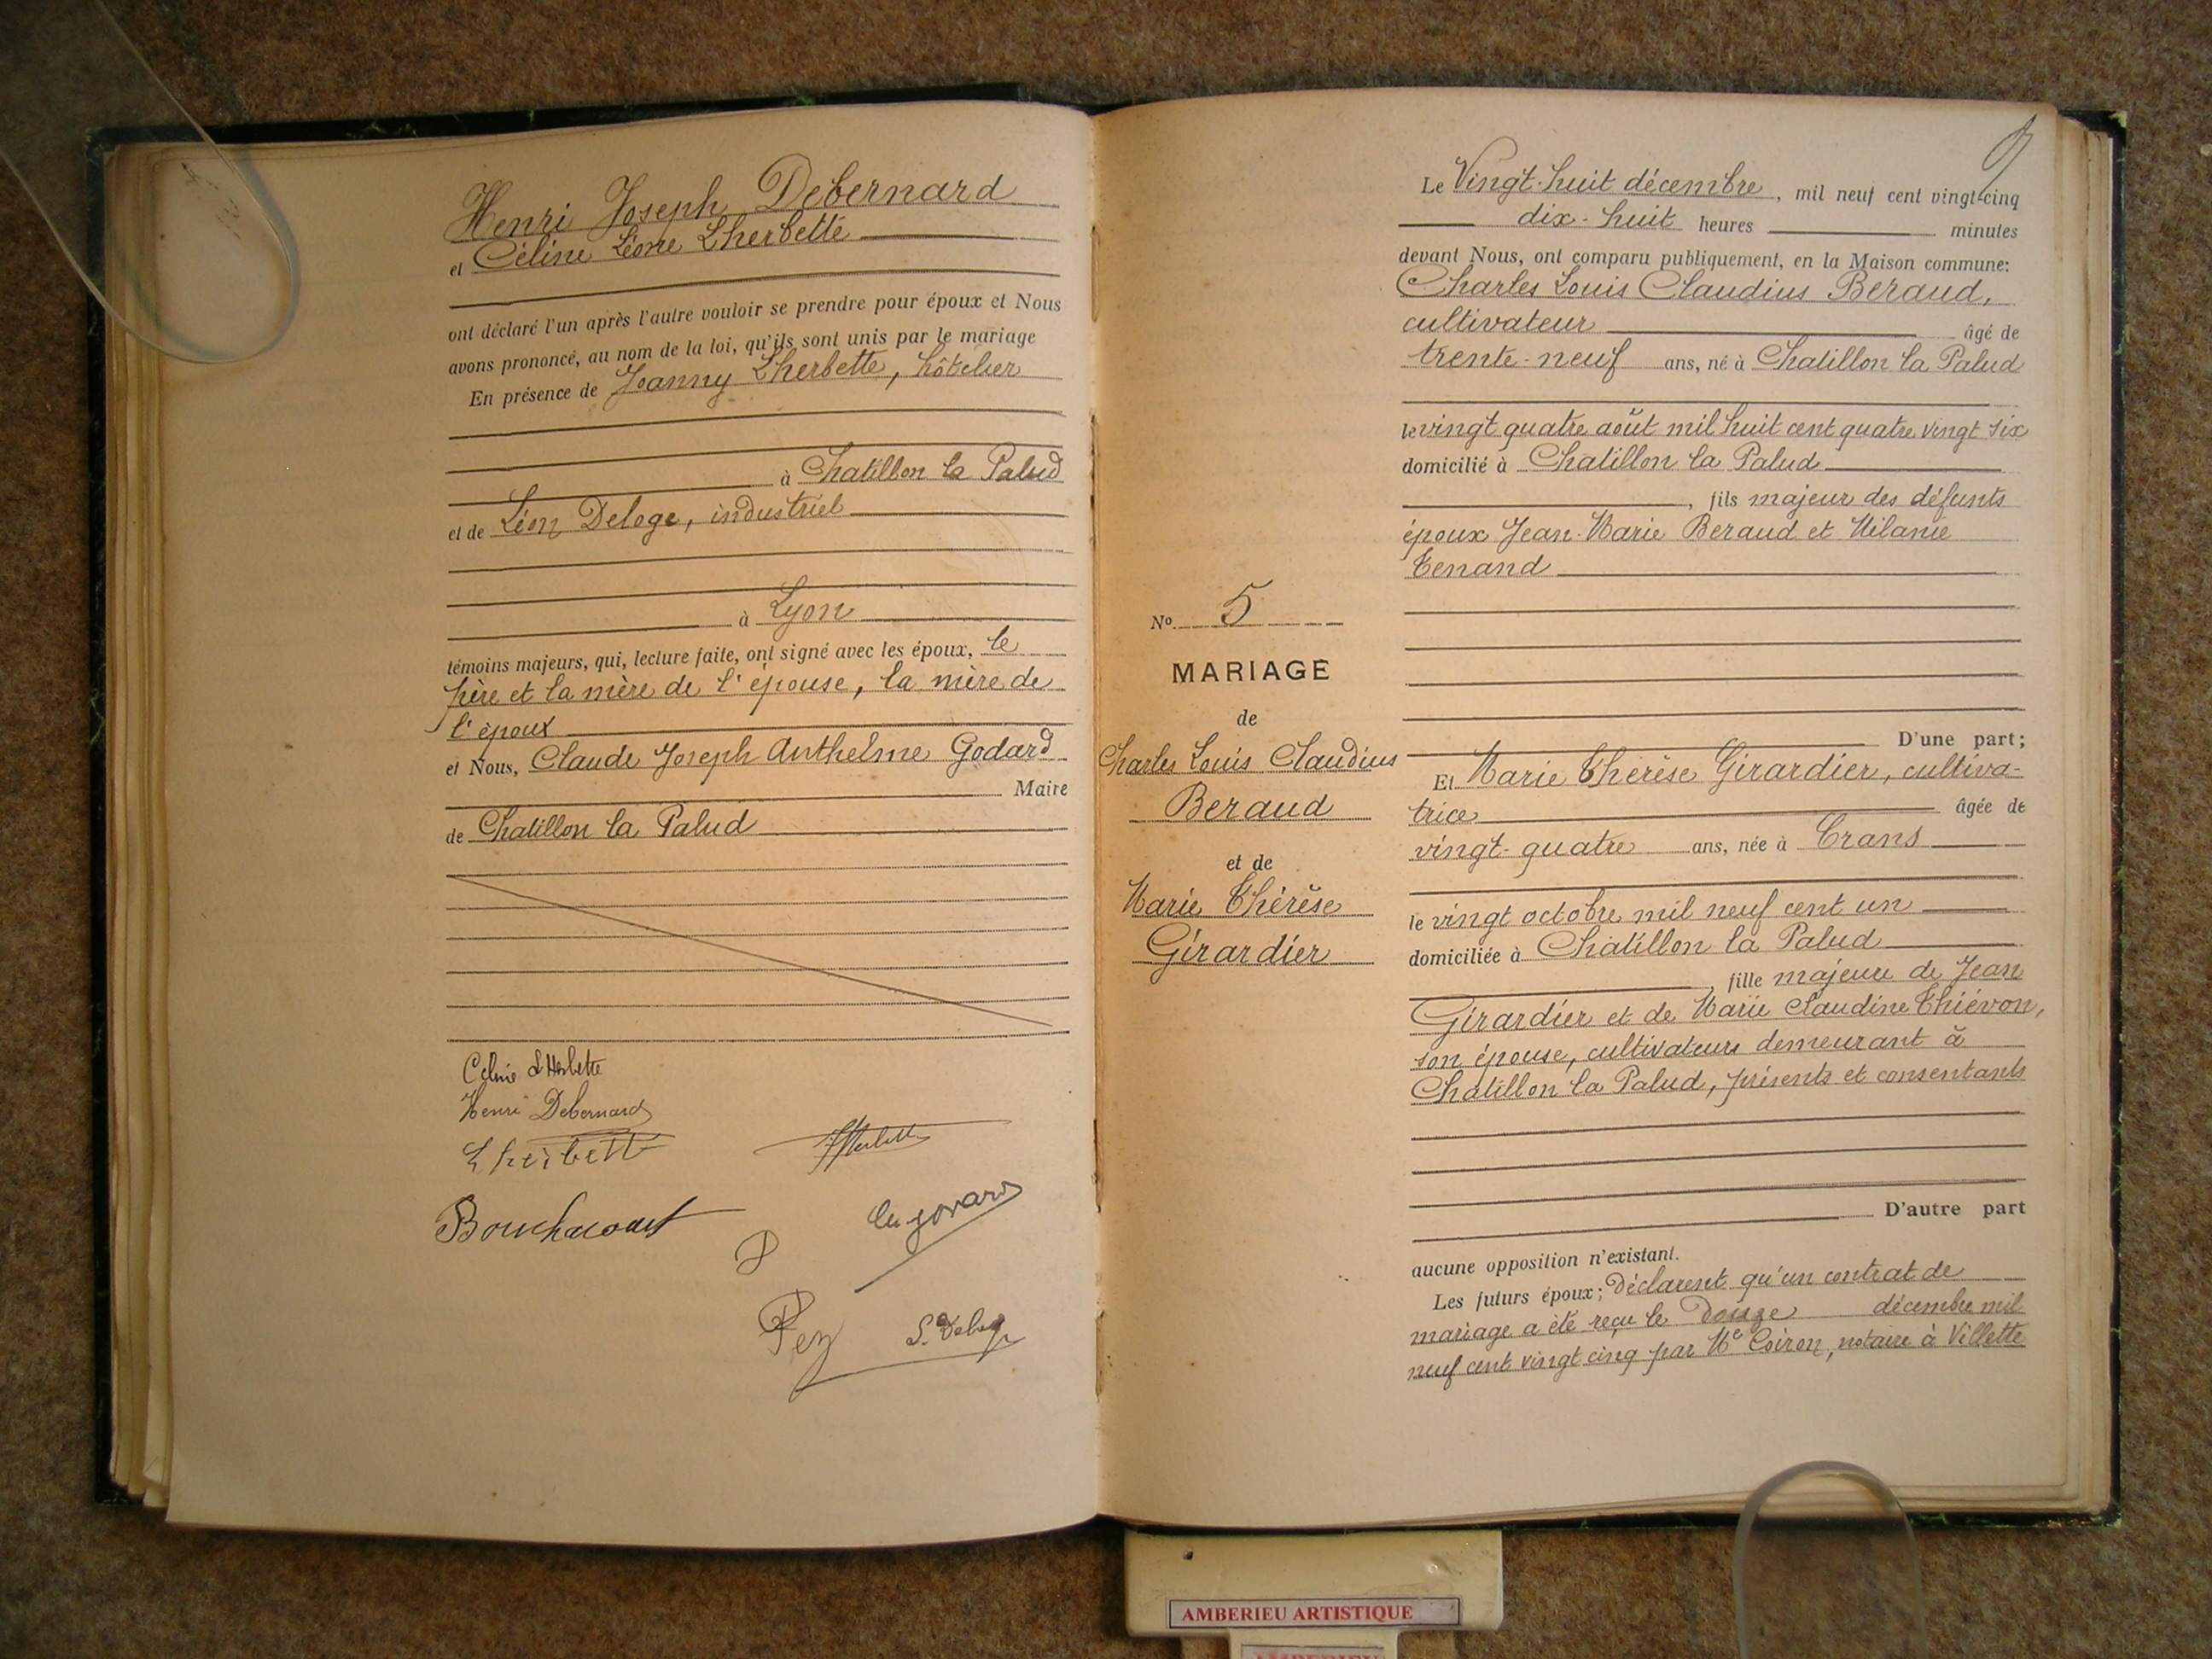 Henri Joseph Debernard
et Céline Léone Lherbette
ont déclaré l'un après l'autre vouloir se prendre pour époux et Nous
avons prononcé, au nom de la loi, qu'ils sont unis par le mariage
En présence de Joanny Lherbette, hôtelier
à Chatillon la Palud
et de Léon Deloge, industriel
à Lyon
témoins majeurs, qui, lecture faite, ont signé avec les époux, le
père et la mère de l'épouse, la mère de
l'époux
et Nous, Claude Joseph Anthelme Godard
Maire
de Chatillon la Palud
Celine Lherbette
Henri Debernard
Lherbette
Bouchacourt
Pey
Le Vingt-huit décembre, mil neuf cent vingt-cinq
dix-huit heures minutes
devant Nous, ont comparu publiquement, en la Maison commune:
Charles Louis Claudius Beraud,
cultivateur âgé de
trente-neuf ans, né à Chatillon la Palud
le vingt quatre août mil huit cent quatre vingt six
domicilié à Chatillon la Palud
, fils majeur des défunts
époux Jean-Marie Beraud et Mélanie
Tenand
D'une part;
No 5
MARIAGE
de
Charles Louis Claudius
Beraud
et de
Marie Thérèse
Girardier
Et Marie Thérèse Girardier, cultiva-
trice âgée de
vingt-quatre ans, née à Crans
le vingt octobre mil neuf cent un
domiciliée à Chatillon la Palud
, fille majeure de Jean
Girardier et de Marie Claudine Thiévon,
son épouse, cultivateurs demeurant à
Chatillon la Palud, présents et consentants
D'autre part
aucune opposition n'existant.
Les futurs époux; Déclarent qu'un contrat de
mariage a été reçu le Douze décembre mil
neuf cent vingt cinq par Me Coiron, notaire à Villette
AMBERIEU ARTISTIQUE
AMBERIEU